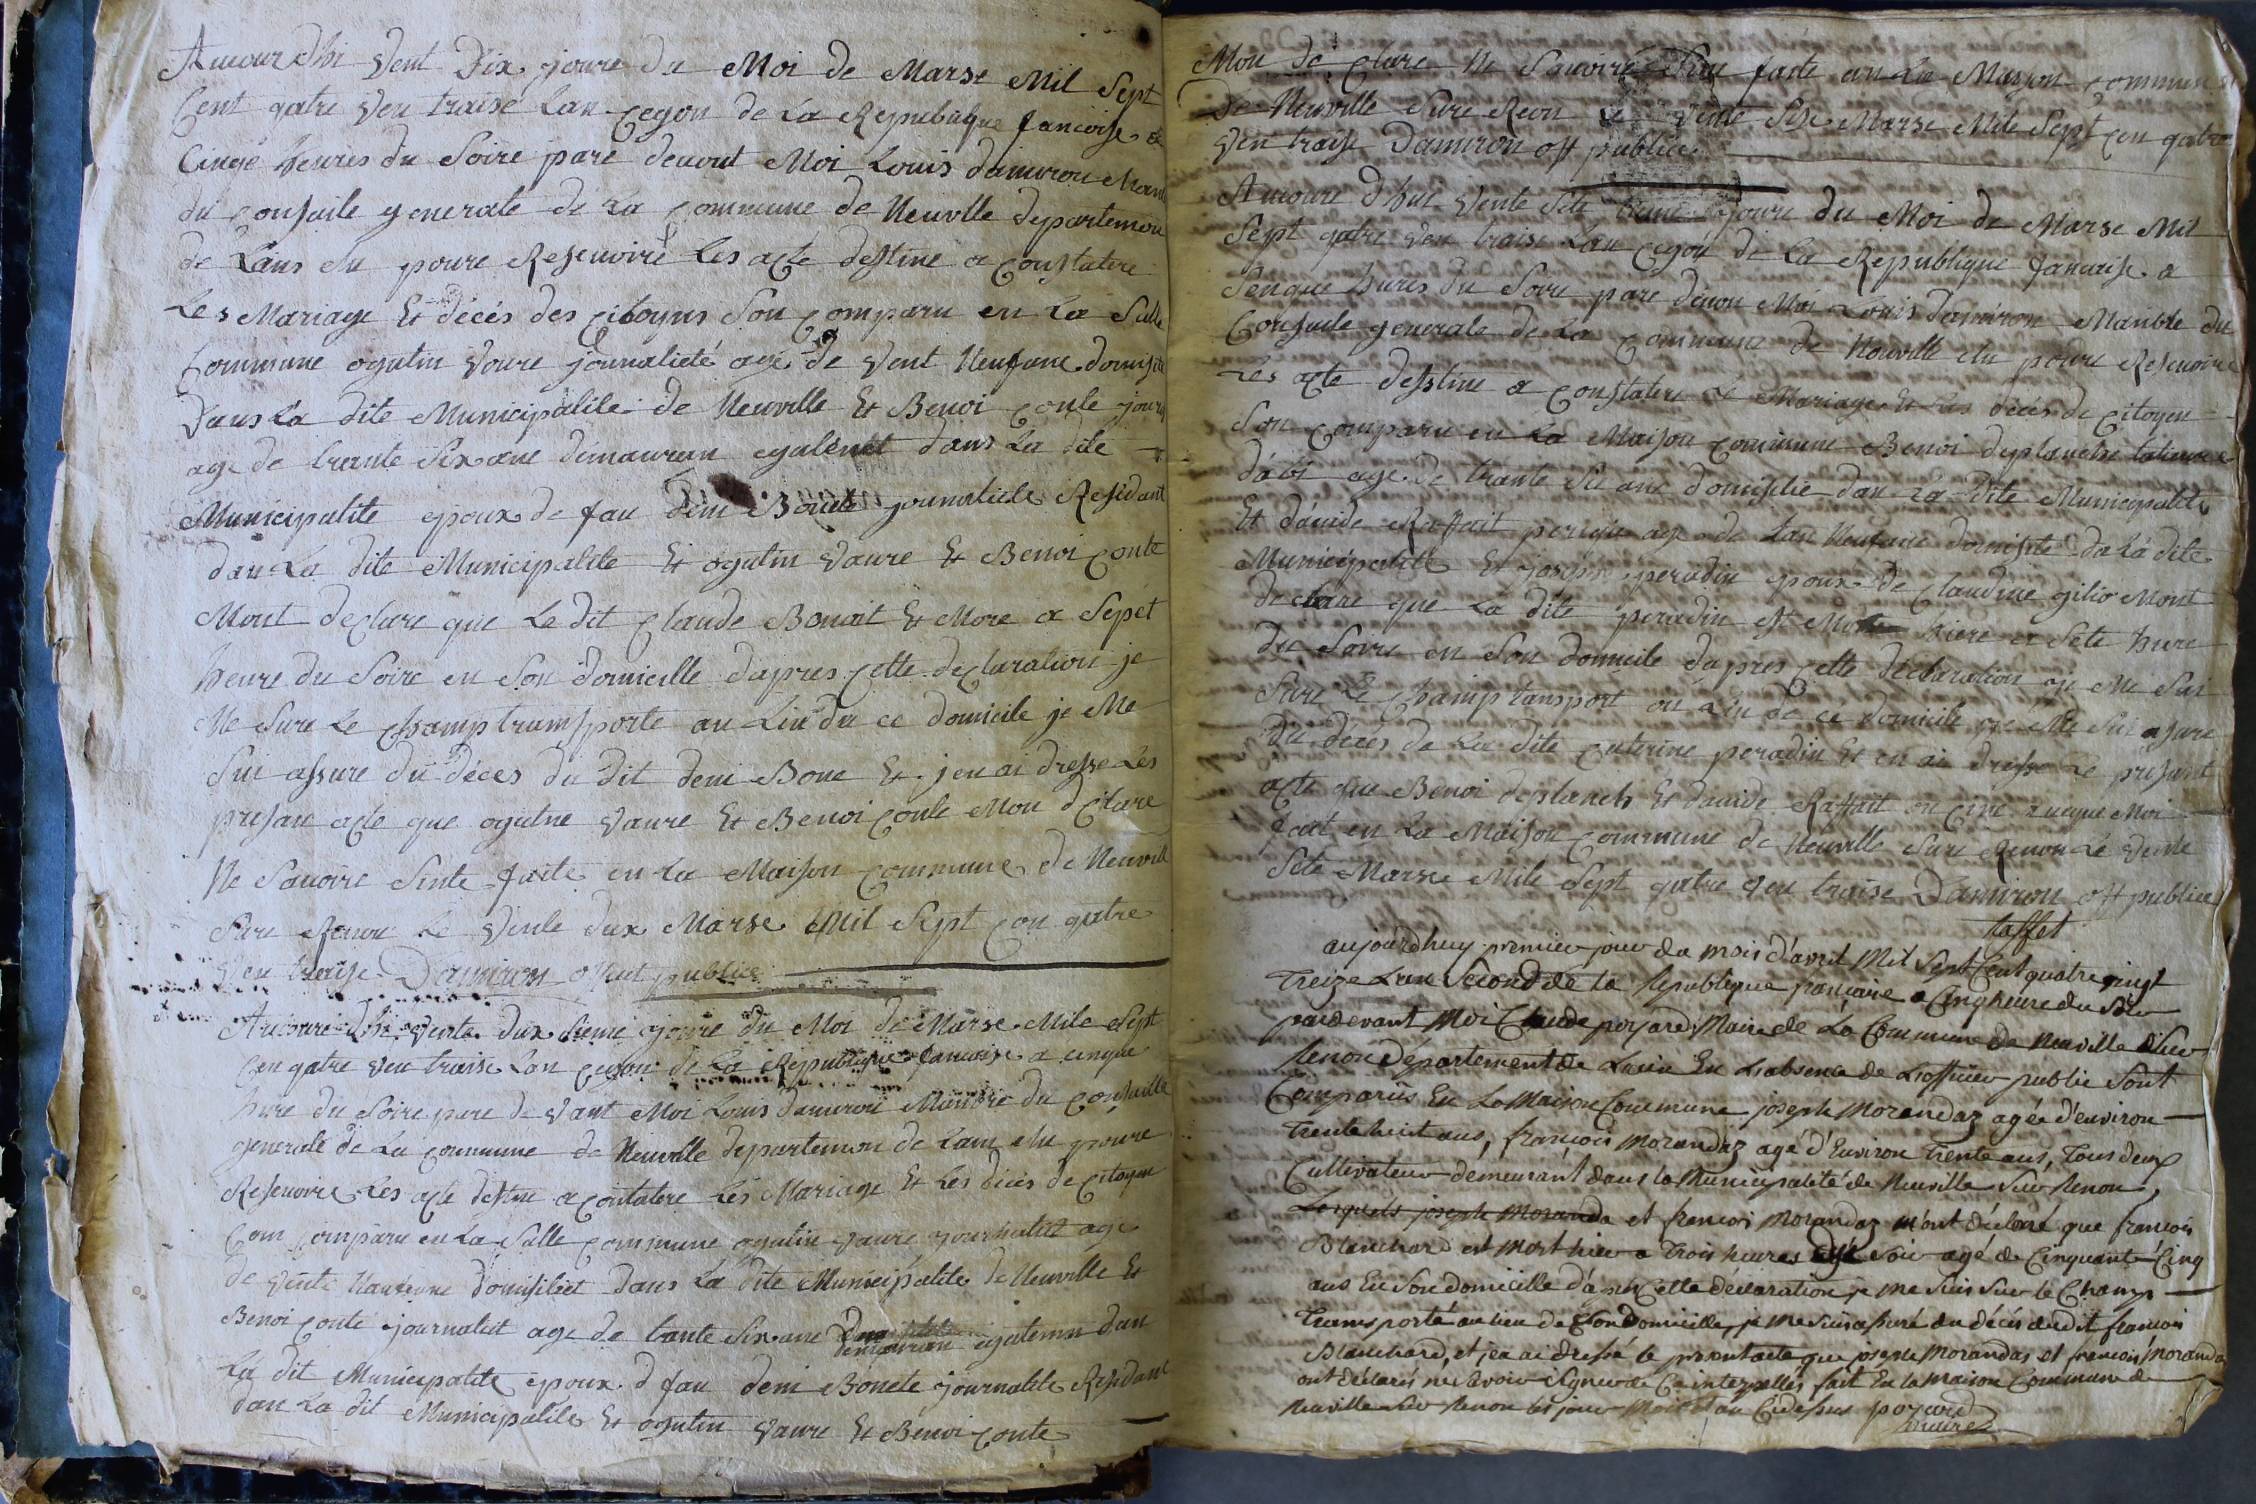 Aucour dhi Vent Dix joure du Moi de Marse Mil Sept
Cent qatre Ven traise Lan Cegon de La Republique francoise a
Cinqe heures du Soire pare devout Moi Louis damiron Manb
du Consaile generale de La Commune de Neuvlle departemon
de Lans elu poure Resenoire Les acte destine a Constatere
Les Mariage Et décés des Citoyns Son Comparu en La Salle
Commune ogutin Voure journalieté age de Vent Neufane domisile
Dans La dite Municipalite de Neuville Et Benoi Conte journ
age de trante Six ane demauran egalemet dans La dite
Municipalite epoux de fau deni Bonete journaliele Residant
dan La dite Municipalite Et ogutin Vaure Et Benoi Conte
Mont declare que Le dit Claude Benoit Et More a Sepet
heure du Soire en Son domicille dapres Cette declaration je
Me Sure Le Champ transporte au Liu du ce domicile je Me
Sui assure du déces du dit deni Bone Et jen ai dresse Les
presan acte que ogutne Vaure Et Benoi Conte Mon declare
Ne Sauoire Sinte faite en La Maison Commune de Neuvill
Sure Renou Le Vente dux Marse Mil Sept Con qatre
Ven traise Damiron offut publice
Aucoure dhi Vente dux sieme joure du Moi de Marse Mile Sept
Cen qatre Ven traise Lan Cegon de La Republique francoise a cinque
hure du Soire pare de Vant Moi Louis damiron Manbre du Consaille
generale de La Commune de Neuville departemon de Lain elu poure
Resenoire Les acte destine a Contatere Les Mariage Et Les décés de Citoyen
Con Comparu en La Salle Commune ogutin Vaure journaliet age
de Vente Naufane domisiliet dans La dite Municipalite de Neuville Et
Benoi Conte journaliet age de tante Six ane demauran egalemn dan
La dit Municipalite epoux d fau deni Bonete journalile Residant
dan La dit Municipalite Et ogutin Vaure Et Benoi Conte
Mon de Clare Ne Savoire Sine faite an La Maison Commune
de Neuville Sure Renon Le Vente Sise Marse Mile Sept Cen qatre
Ven traise Damiron off publice
Aucoure dhui Vente Sete sieme joure du Moi de Marse Mil
Sept qatre Ven traise Lan Cegon de La Republique francoise a
Senque hures du Soire pare devon Moi Louis damiron Manbre du
Consaile generale de La Commune de Neuville elu poure Resenoire
Les acte destine a Constatere Le Mariage Et Les décés de Citoyen
Son Comparu en La Maison Commune Benoi deplanche
dabi age de trante Sis ane domisilie dan La dite Municipalite
Et davide Raffait age de tan Neufane domisilie da La dite
Municipalite Et joseph peradin epoux de Claudine gilio Mont
declare que La dite peradin est Morte hiere a Sete hure
du Soire en Son domicile dapres Cette declaration je Me Sui
Sure Le Champ tansport au Liu de ce domicile je Me Sui asure
du décés de La dite Caterine peradin Et en ai dresse Le presant
acte que Benoi deplanch Et davide Raffait on Cine aveque Moi
fait en La Maison Commune de Neuville Sure Renon Le Vente
Sete Marse Mile Sept qatre Ven traise Damiron off publice
Raffet
aujourdhuy premier jour du mois d'avril Mil Sept Cent quatre vingt
Treize L'an Second de la Republique françoise a Cinq heure du Soir
pardevant Moi Claude poyard Maire de La Commune de Neuville Sur
Renon département de Lain En Labsence de L'officier public Sont
Comparüs En La Maison Commune joseph Morandaz agée d'environ
Trente huit ans, françois Morandaz agé d'Environ trente ans, Tous deux
Cultivateur demeurant dans la Municipalité de Neuville Sur Renon,
Lesquels joseph Moranda et francois Morandaz m'ont déclaré que francois
Blanchard est Mort hier a Trois heures du Soir agé de Cinquante Cinq
ans En Son domicille d'après Cette declaration je me Suis Sur le Champ
Transporté au lieu de Son Domicille, je me Suis assuré du décès dudit francois
Blanchard, et j'en ai dressé le présent acte que joseph Morandas et francois Moranda
ont déclarés ne Savoir Signer de Ce interpellés fait En la Maison Commune de
Neuville Sur Renon les jour Mois et an Cidessus poyard
maire